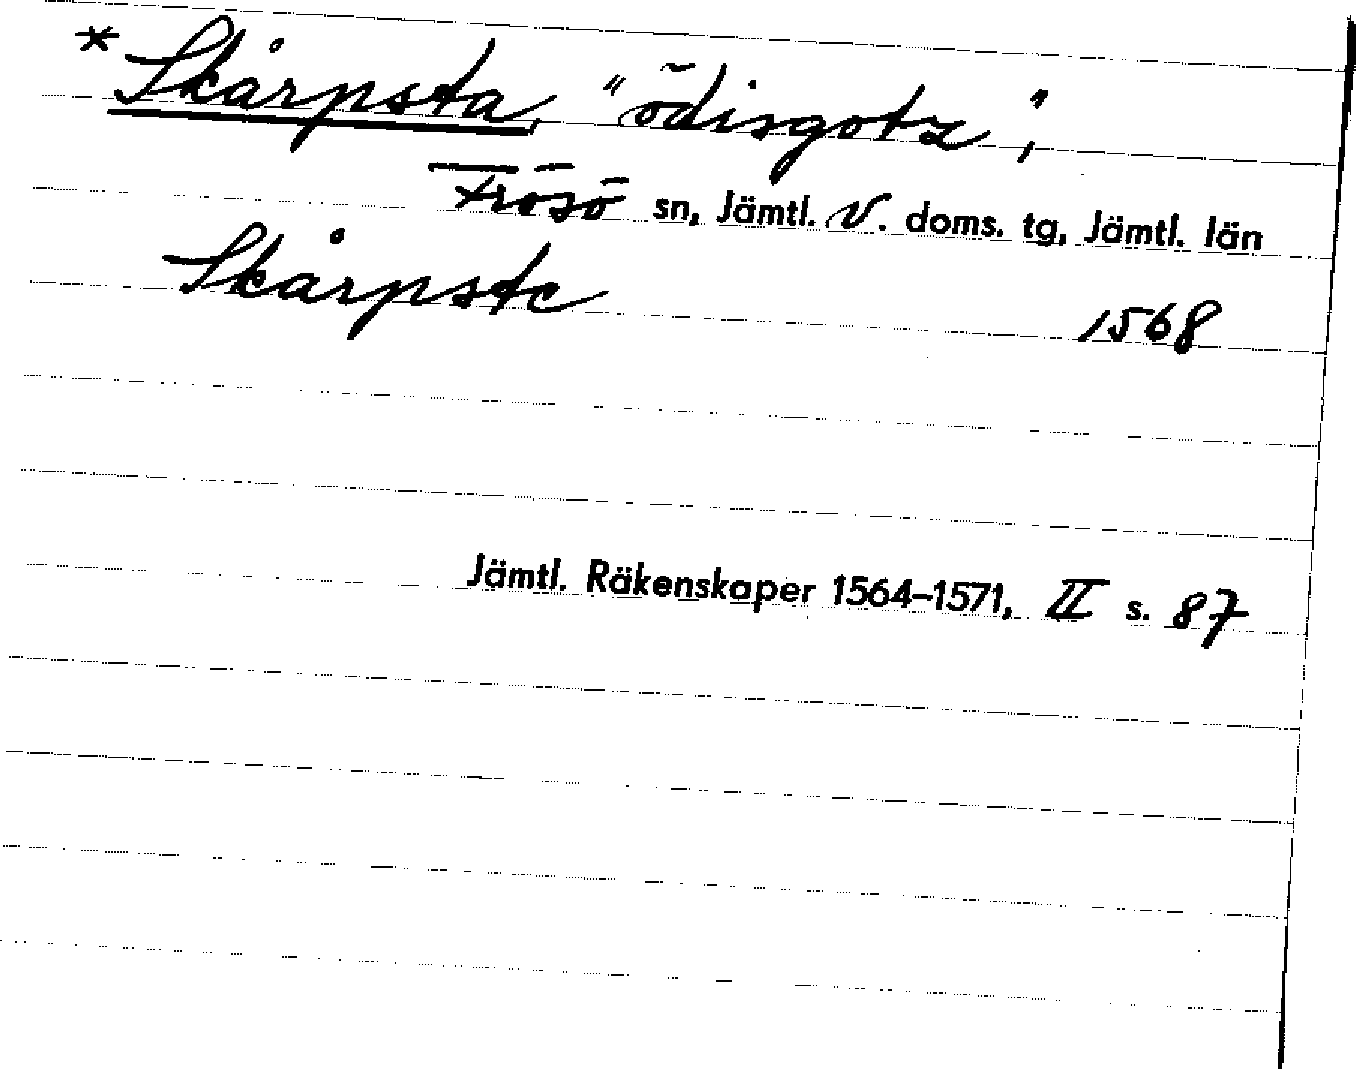 * Skårpsta, "ödisgotz",
Frösö sn, Jämtl. V. doms. tg, Jämtl. län
Skårpste 1568
Jämtl. Räkenskaper 1564–1571, II s. 87